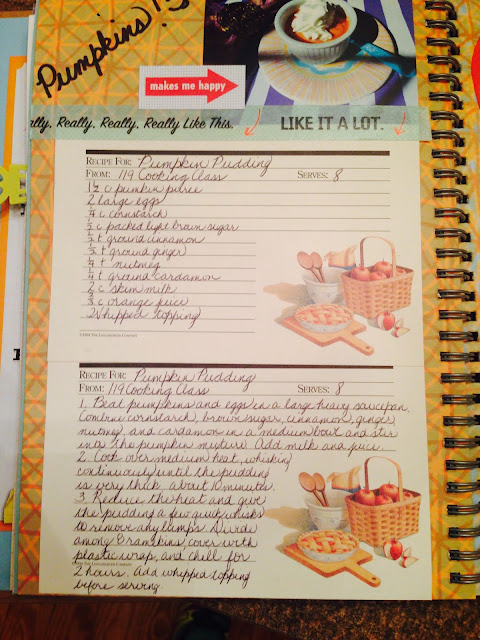 Pumpkins
makes me happy
ally. Really. Really. Really Like This.
LIKE IT A LOT.
RECIPE FOR: Pumpkin Pudding
FROM: 119 Cooking Class SERVES: 8
1½ c pumkin puree
2 large eggs
¼ c cornstarch
½ c packed light brown sugar
½ t ground cinnamon
½ t ground ginger
¼ t nutmeg
¼ t ground cardamon
2 c skim milk
⅔ c orange juice
Whipped topping
RECIPE FOR: Pumpkin Pudding
FROM: 119 Cooking Class SERVES: 8
1. Beat pumpkins and eggs in a large heavy saucepan.
Combine cornstarch, brown sugar, cinnamon, ginger,
nutmeg and cardamon in a medium bowl and stir
into the pumpkin mixture. Add milk and juice.
2. Cook over medium heat, whisking
continuously until the pudding
is very thick, about 10 minutes.
3. Reduce the heat and give
the pudding a few quick whisks
to remove any lumps. Divide
among 8 ramekins, cover with
plastic wrap, and chill for
2 hours. Add whipped topping
before serving.